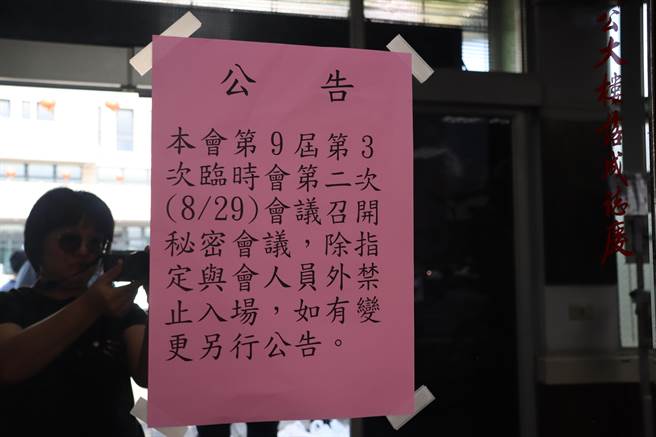 公告
本會第9屆第3
次臨時會第二次
(8/29)會議召開
秘密會議，除指
定與會人員外禁
止入場，如有變
更另行公告。
公大樓落成誌慶